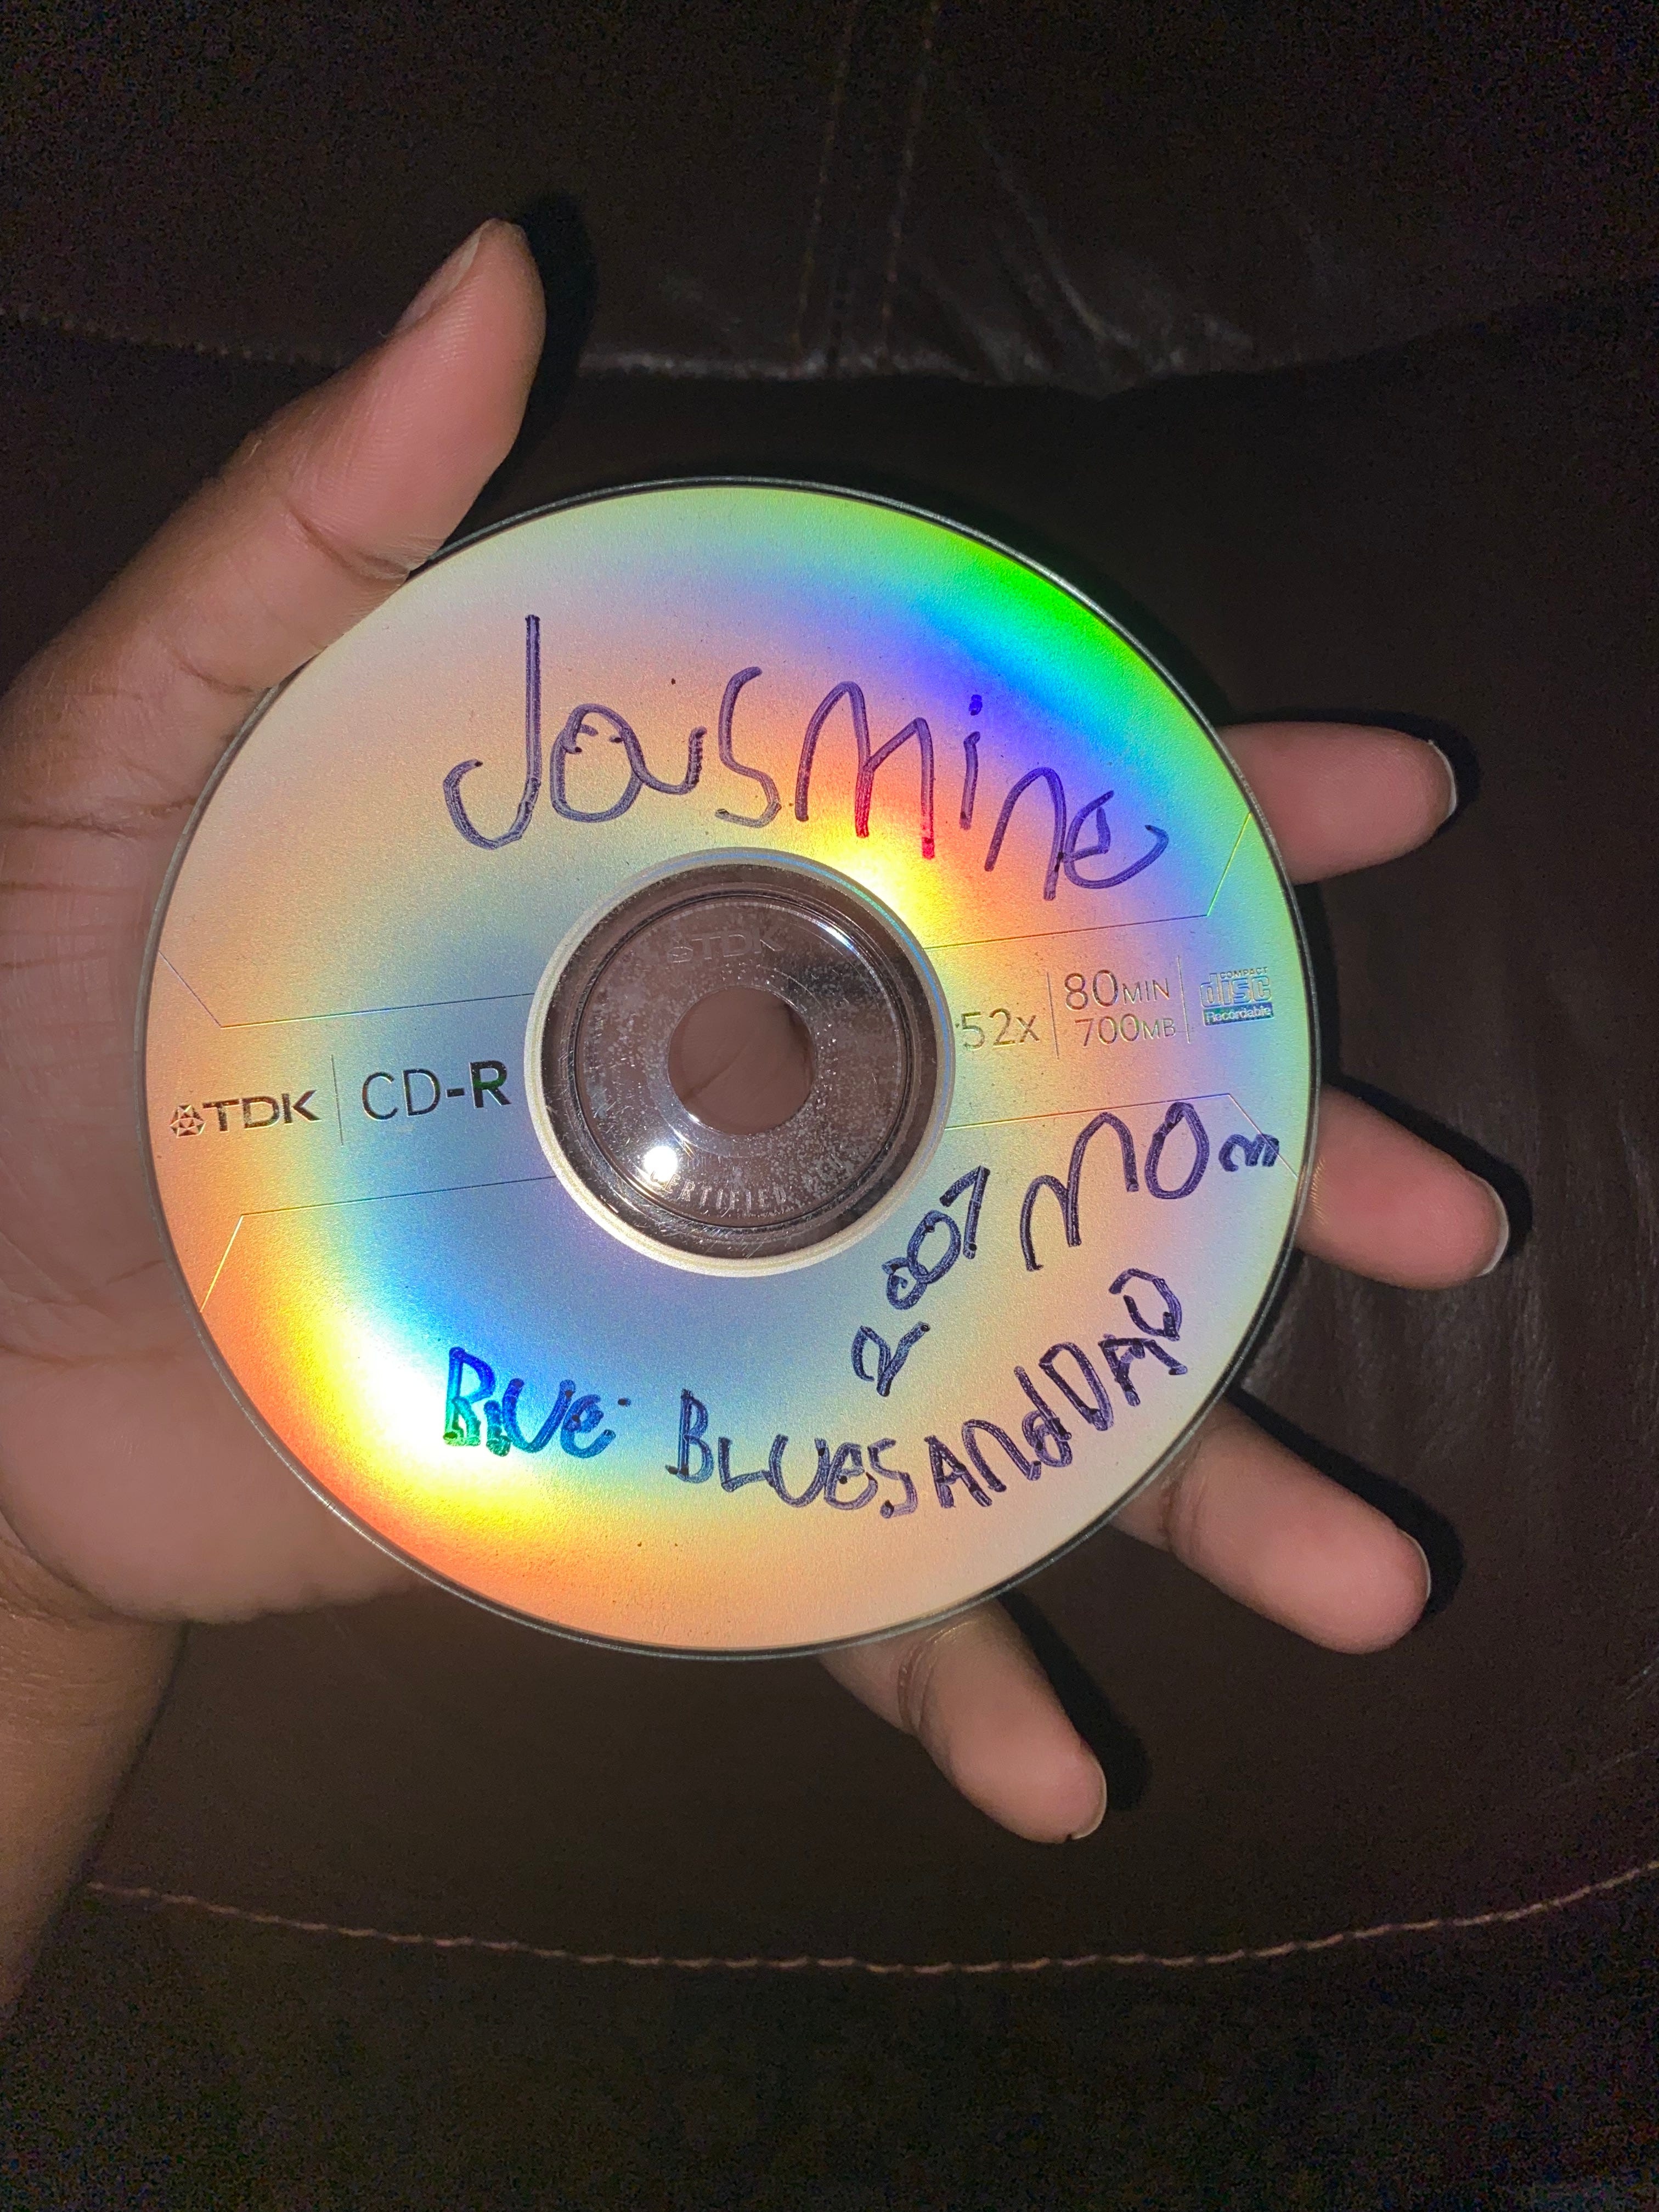 Jasmine
TDK
TDK CD-R
52x 80MIN 700MB COMPACT disc Recordable
CERTIFIED
2007 MOm
BlUe BLUES ANd DAD